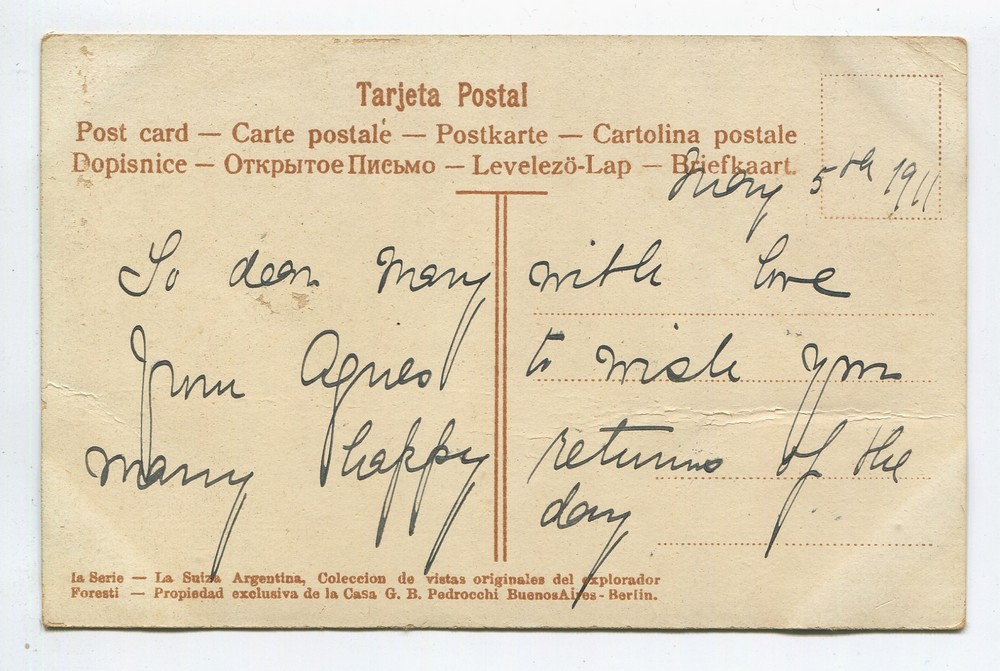 Tarjeta Postal
Post card — Carte postale — Postkarte — Cartolina postale
Dopisnice — Открытое Письмо — Levelezö-Lap — Briefkaart.
May 5th 1911
To dear Mary with love
from Agnes to wish you
many happy returns of the
day
Ia Serie — La Suiza Argentina, Coleccion de vistas originales del explorador
Foresti — Propiedad exclusiva de la Casa G. B. Pedrocchi BuenosAires - Berlin.